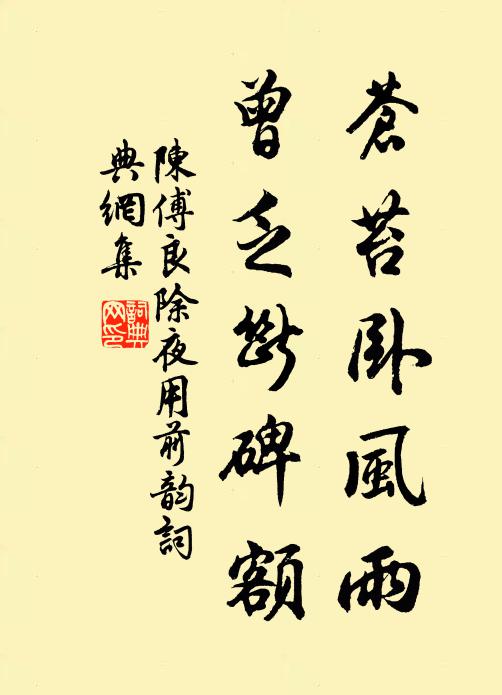 蒼苔卧風雨
曾乏斷碑額
陳傅良除夜用前韵詞
典網集
詞典網印